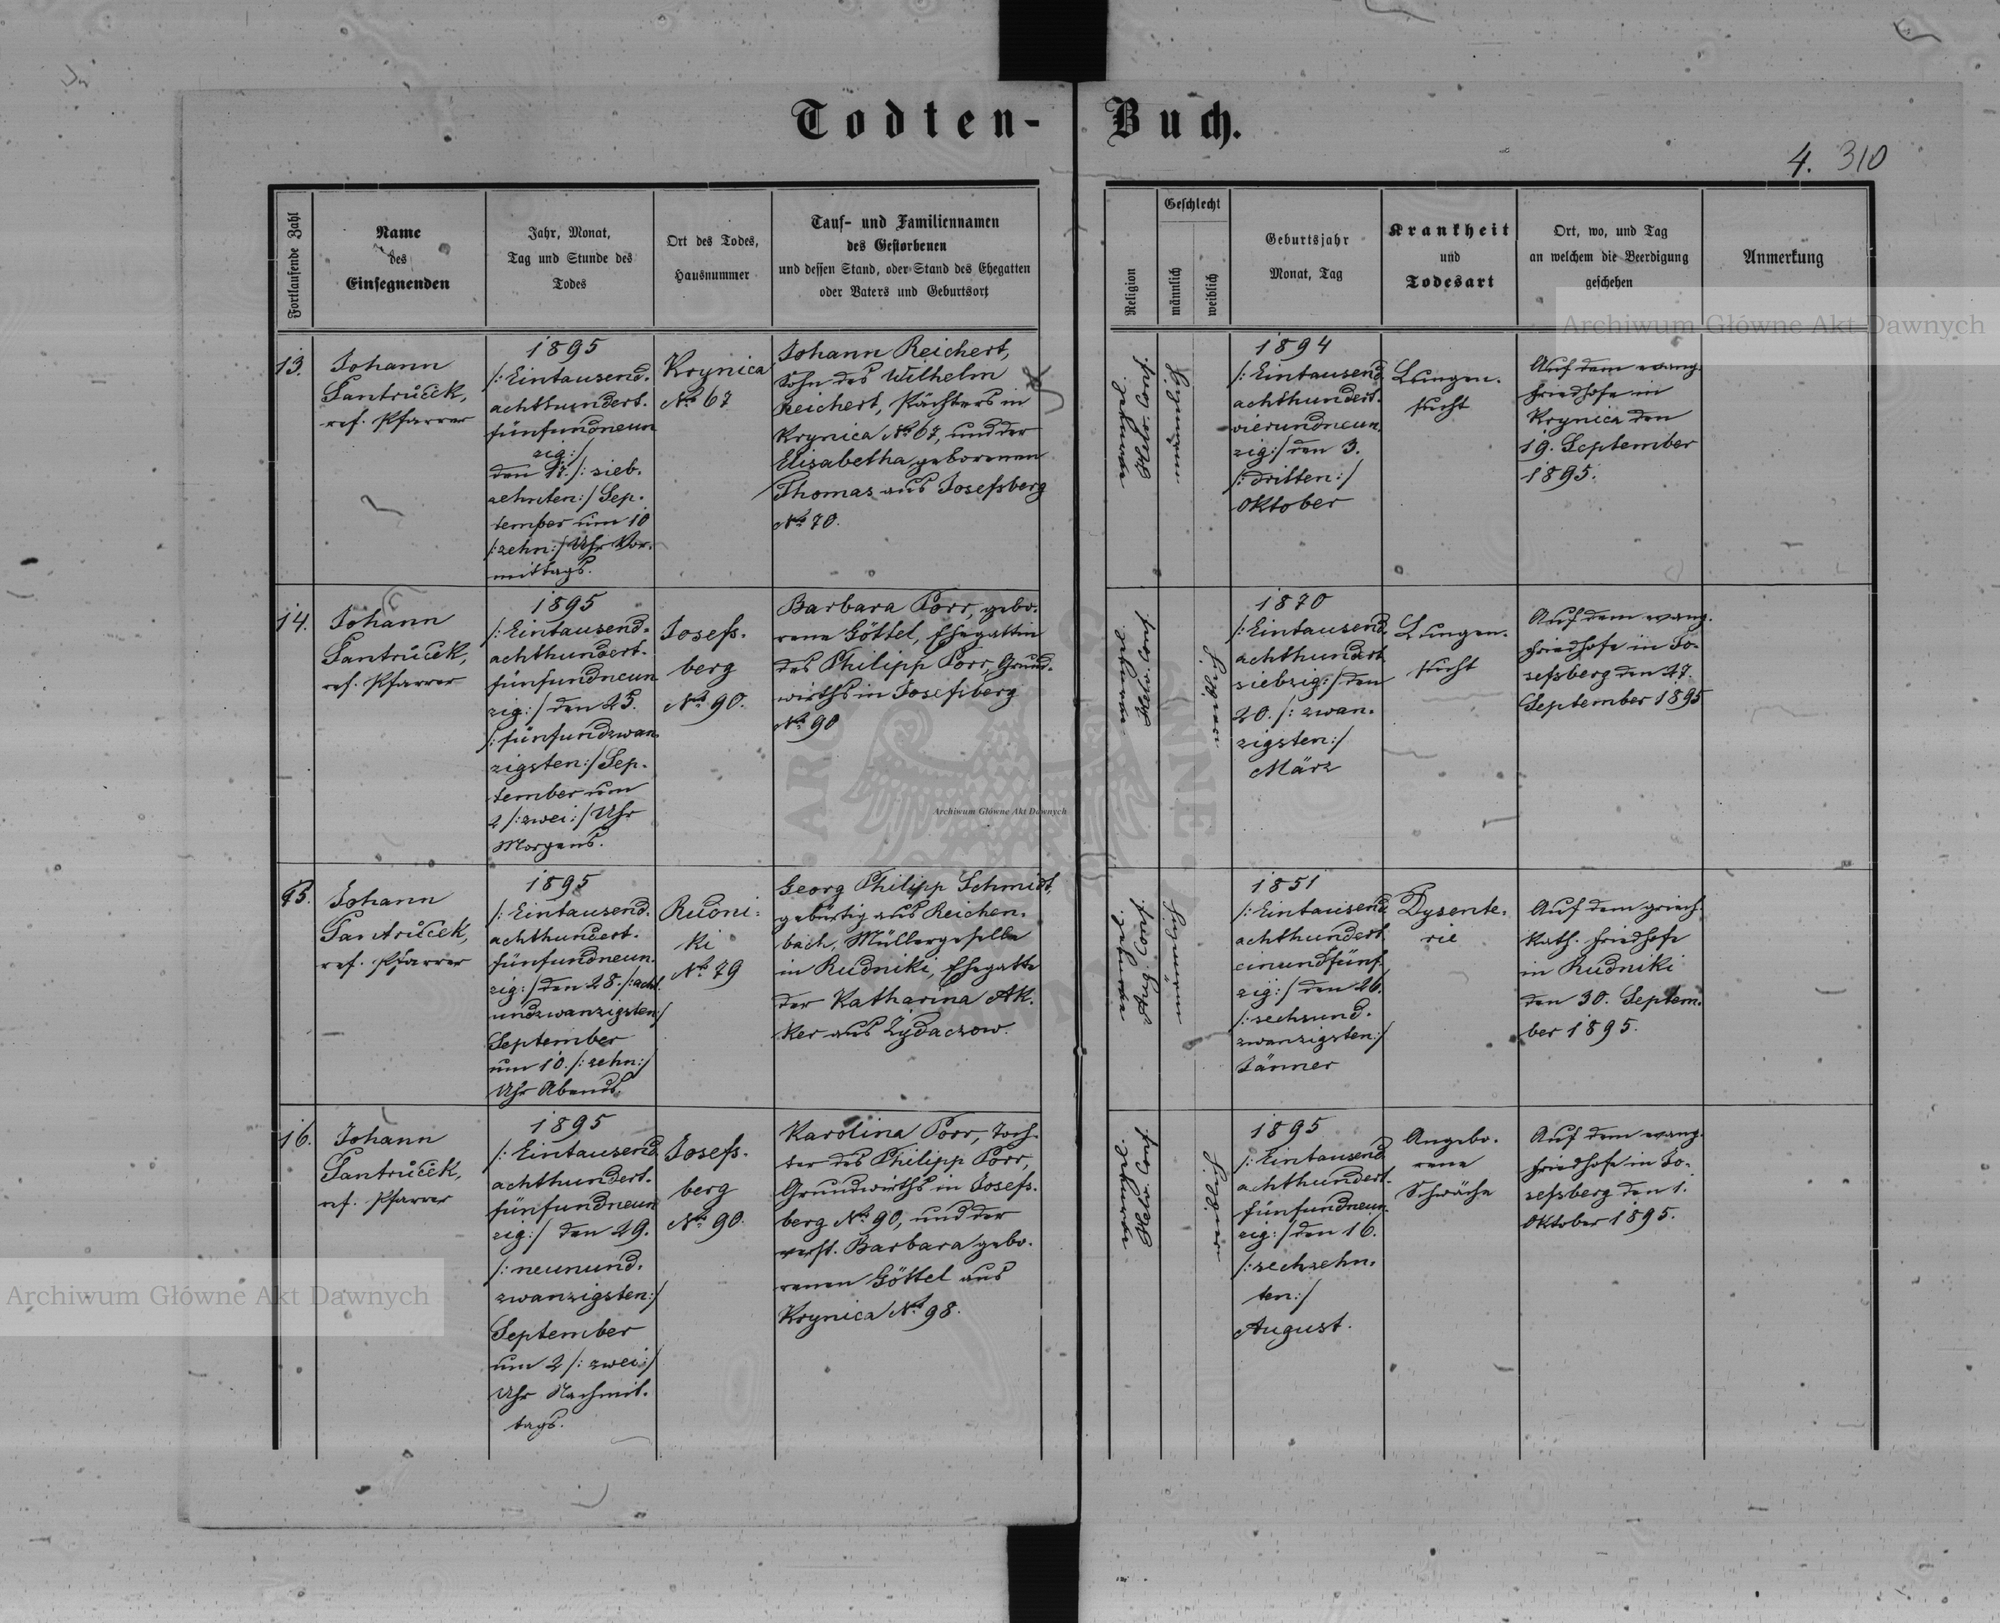 Todten-Buch.
4. 310
Fortlaufende Zahl
Name
des
Einsegnenden
Jahr, Monat,
Tag und Stunde des
Todes
Ort des Todes,
Hausnummer
Tauf- und Familiennamen
des Gestorbenen
und dessen Stand, oder Stand des Ehegatten
oder Vaters und Geburtsort
Religion
Geschlecht
männlich
weiblich
Geburtsjahr
Monat, Tag
Krankheit
und
Todesart
Ort, wo, und Tag
an welchem die Beerdigung
geschehen
Anmerkung
13.
Johann
Šantrůček,
ref. Pfarrer
1895
/: Eintausend-
achthundert-
fünfundneun
zig :/
den 17. /: sieb-
zehnten :/ Sep-
tember um 10
/: zehn :/ Uhr Vor-
mittags.
Krynica
No 67
Johann Reichert,
Sohn des Wilhelm
Reichert, Pächters in
Krynica No 67, und der
Elisabetha, geborenen
Thomas aus Josefsberg
No 70.
evangel.
Helv. Conf.
männlich
1894
/: Eintausend
achthundert-
vierundneun
zig :/ den 3.
/: dritten :/
Oktober
Lungen-
sucht
Auf dem evang.
Friedhofe in
Krynica den
19. September
1895.
14.
Johann
Šantrůček,
ref. Pfarrer
1895
/: Eintausend-
achthundert-
fünfundneun
zig :/ den 25.
/: fünfundzwan-
zigsten :/ Sep-
tember um
2 /: zwei :/ Uhr
Morgens.
Josefs-
berg
No 90.
Barbara Porr, gebo-
rene Göttel, Ehegattin
des Philipp Porr, Grund-
wirths in Josefsberg
No 90
evangel.
Helv. Conf.
weiblich
1870
/: Eintausend
achthundert
siebzig :/ den
20. /: zwan-
zigsten :/
März
Lungen-
sucht
Auf dem evang.
Friedhofe in Jo-
sefsberg den 27.
September 1895
15.
Johann
Šantrůček,
ref. Pfarrer
1895
/: Eintausend-
achthundert-
fünfundneun-
zig :/ den 28. /: acht-
undzwanzigsten :/
September
um 10. /: zehn :/
Uhr Abends.
Rudni-
ki
No 79
Georg Philipp Schmidt,
gebürtig aus Reichen-
bach, Müllergeselle
in Rudniki, Ehegatte
der Katharina Ak-
ker aus Żydaczow.
evangel.
Aug. Conf.
männlich
1851
/: Eintausend
achthundert
einundfünf-
zig :/ den 26.
/: sechsund-
zwanzigsten :/
Jänner
Dysente-
rie
Auf dem griech.
kath. Friedhofe
in Rudniki
den 30. Septem-
ber 1895.
16.
Johann
Šantrůček,
ref. Pfarrer
1895
/: Eintausend
achthundert-
fünfundneun
zig :/ den 29.
/: neunund-
zwanzigsten :/
September
um 2 /: zwei :/
Uhr Nachmit-
tags.
Josefs-
berg
No 90.
Karolina Porr, Toch-
ter des Philipp Porr,
Grundwirths in Josefs-
berg No 90, und der
verst. Barbara gebo-
renen Göttel aus
Krynica No 98.
evangel.
Helv. Conf.
weiblich
1895
/: Eintausend
achthundert-
fünfundneun-
zig :/ den 16.
/: sechzehn-
ten :/
August.
Angebo-
rene
Schwäche
Auf dem evang.
Friedhofe in Jo-
sefsberg den 1.
Oktober 1895.
Archiwum Główne Akt Dawnych
Archiwum Główne Akt Dawnych
Archiwum Główne Akt Dawnych